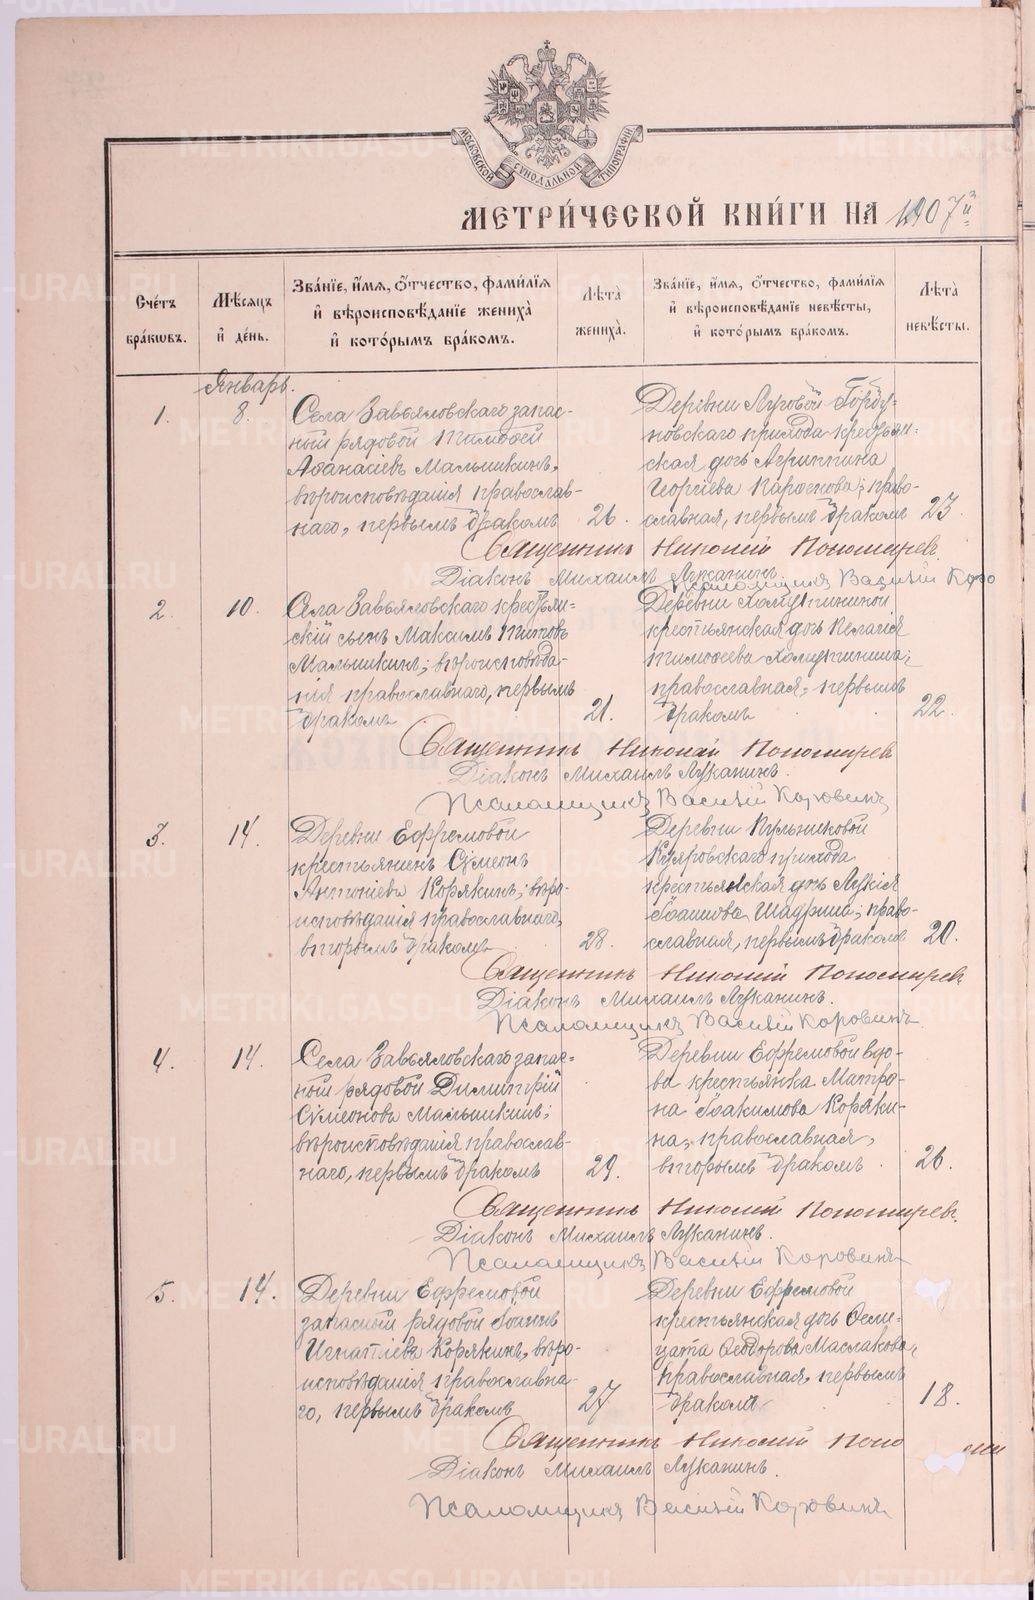 МОСКОВСКОЙ СУНОДАЛЬНОЙ ТИПОГРАФІИ
МЕТРИ́ЧЕСКОЙ КНИ́ГИ НА 1907й
Сче́тъ бра́ковъ.
Мѣ́сяцъ и де́нь.
Зва́нїе, и́мя, о́тчество, фами́лїя и вѣроисповѣ́данїе жениха̀ и кото́рымъ бра́комъ.
Лѣ́та жениха̀.
Зва́нїе, и́мя, о́тчество, фами́лїя и вѣроисповѣ́данїе невѣ́сты, и кото́рымъ бра́комъ.
Лѣ́та невѣ́сты.
Январь.
1.
8.
Села Завьяловскаго запас-
ный рядовой Тимофей
Афанасіевъ Малышкинъ,
вѣроисповѣданія православ-
наго, первымъ бракомъ
26.
Деревни Луговой Горбу-
новскаго прихода крестьян-
ская дочь Агриппина
Георгіева; право-
славная, первымъ бракомъ
23.
Священникъ Николай Пономаревъ.
Діаконъ Михаилъ Луканинъ.
Псаломщикъ Василій Коро
2.
10.
Села Завьяловскаго крестьян-
скій сынъ Максимъ Титовъ
Малышкинъ; вѣроисповѣда-
нія православнаго, первымъ
бракомъ
21.
Деревни Хомутининой
крестьянская дочь Пелагія
Тимофеева Хомутинина;
православная, первымъ
бракомъ
22.
Священникъ Николай Пономарев
Діаконъ Михаилъ Луканинъ.
Псаломщикъ Василій Коровинъ
3.
14.
Деревни Ефремовой
крестьянинъ Сѵмеонъ
Антоніевъ Корякинъ; вѣро-
исповѣданія православнаго,
вторымъ бракомъ
28.
Деревни Пульниковой
Куяровскаго прихода
крестьянская дочь Лукія
Іоаннова Шадрина; право-
славная, первымъ бракомъ
20.
Священникъ Николай Пономарев
Діаконъ Михаилъ Луканинъ.
Псаломщикъ Василій Коровинъ
4.
14.
Села Завьяловскаго запас-
ной рядовой Димитрій
Сѵмеоновъ Малышкинъ;
вѣроисповѣданія православ-
наго, первымъ бракомъ
29.
Деревни Ефремовой вдо-
ва крестьянка Матро-
на Іоакимова Коряки-
на, православная,
вторымъ бракомъ
26.
Священникъ Николай Пономаревъ.
Діаконъ Михаилъ Луканинъ.
Псаломщикъ Василій Коровинъ
5.
14.
Деревни Ефремовой
запасный рядовой Іоаннъ
Игнатіевъ Корякинъ, вѣро-
исповѣданія православна-
го, первымъ бракомъ
27
Деревни Ефремовой
крестьянская дочь Фели-
цата Феодорова Маслакова,
православная, первымъ
бракомъ
18.
Священникъ Николай Поно
Діаконъ Михаилъ Луканинъ.
Псаломщикъ Василій Коровинъ
METRIKI.GASO-URAL.RU